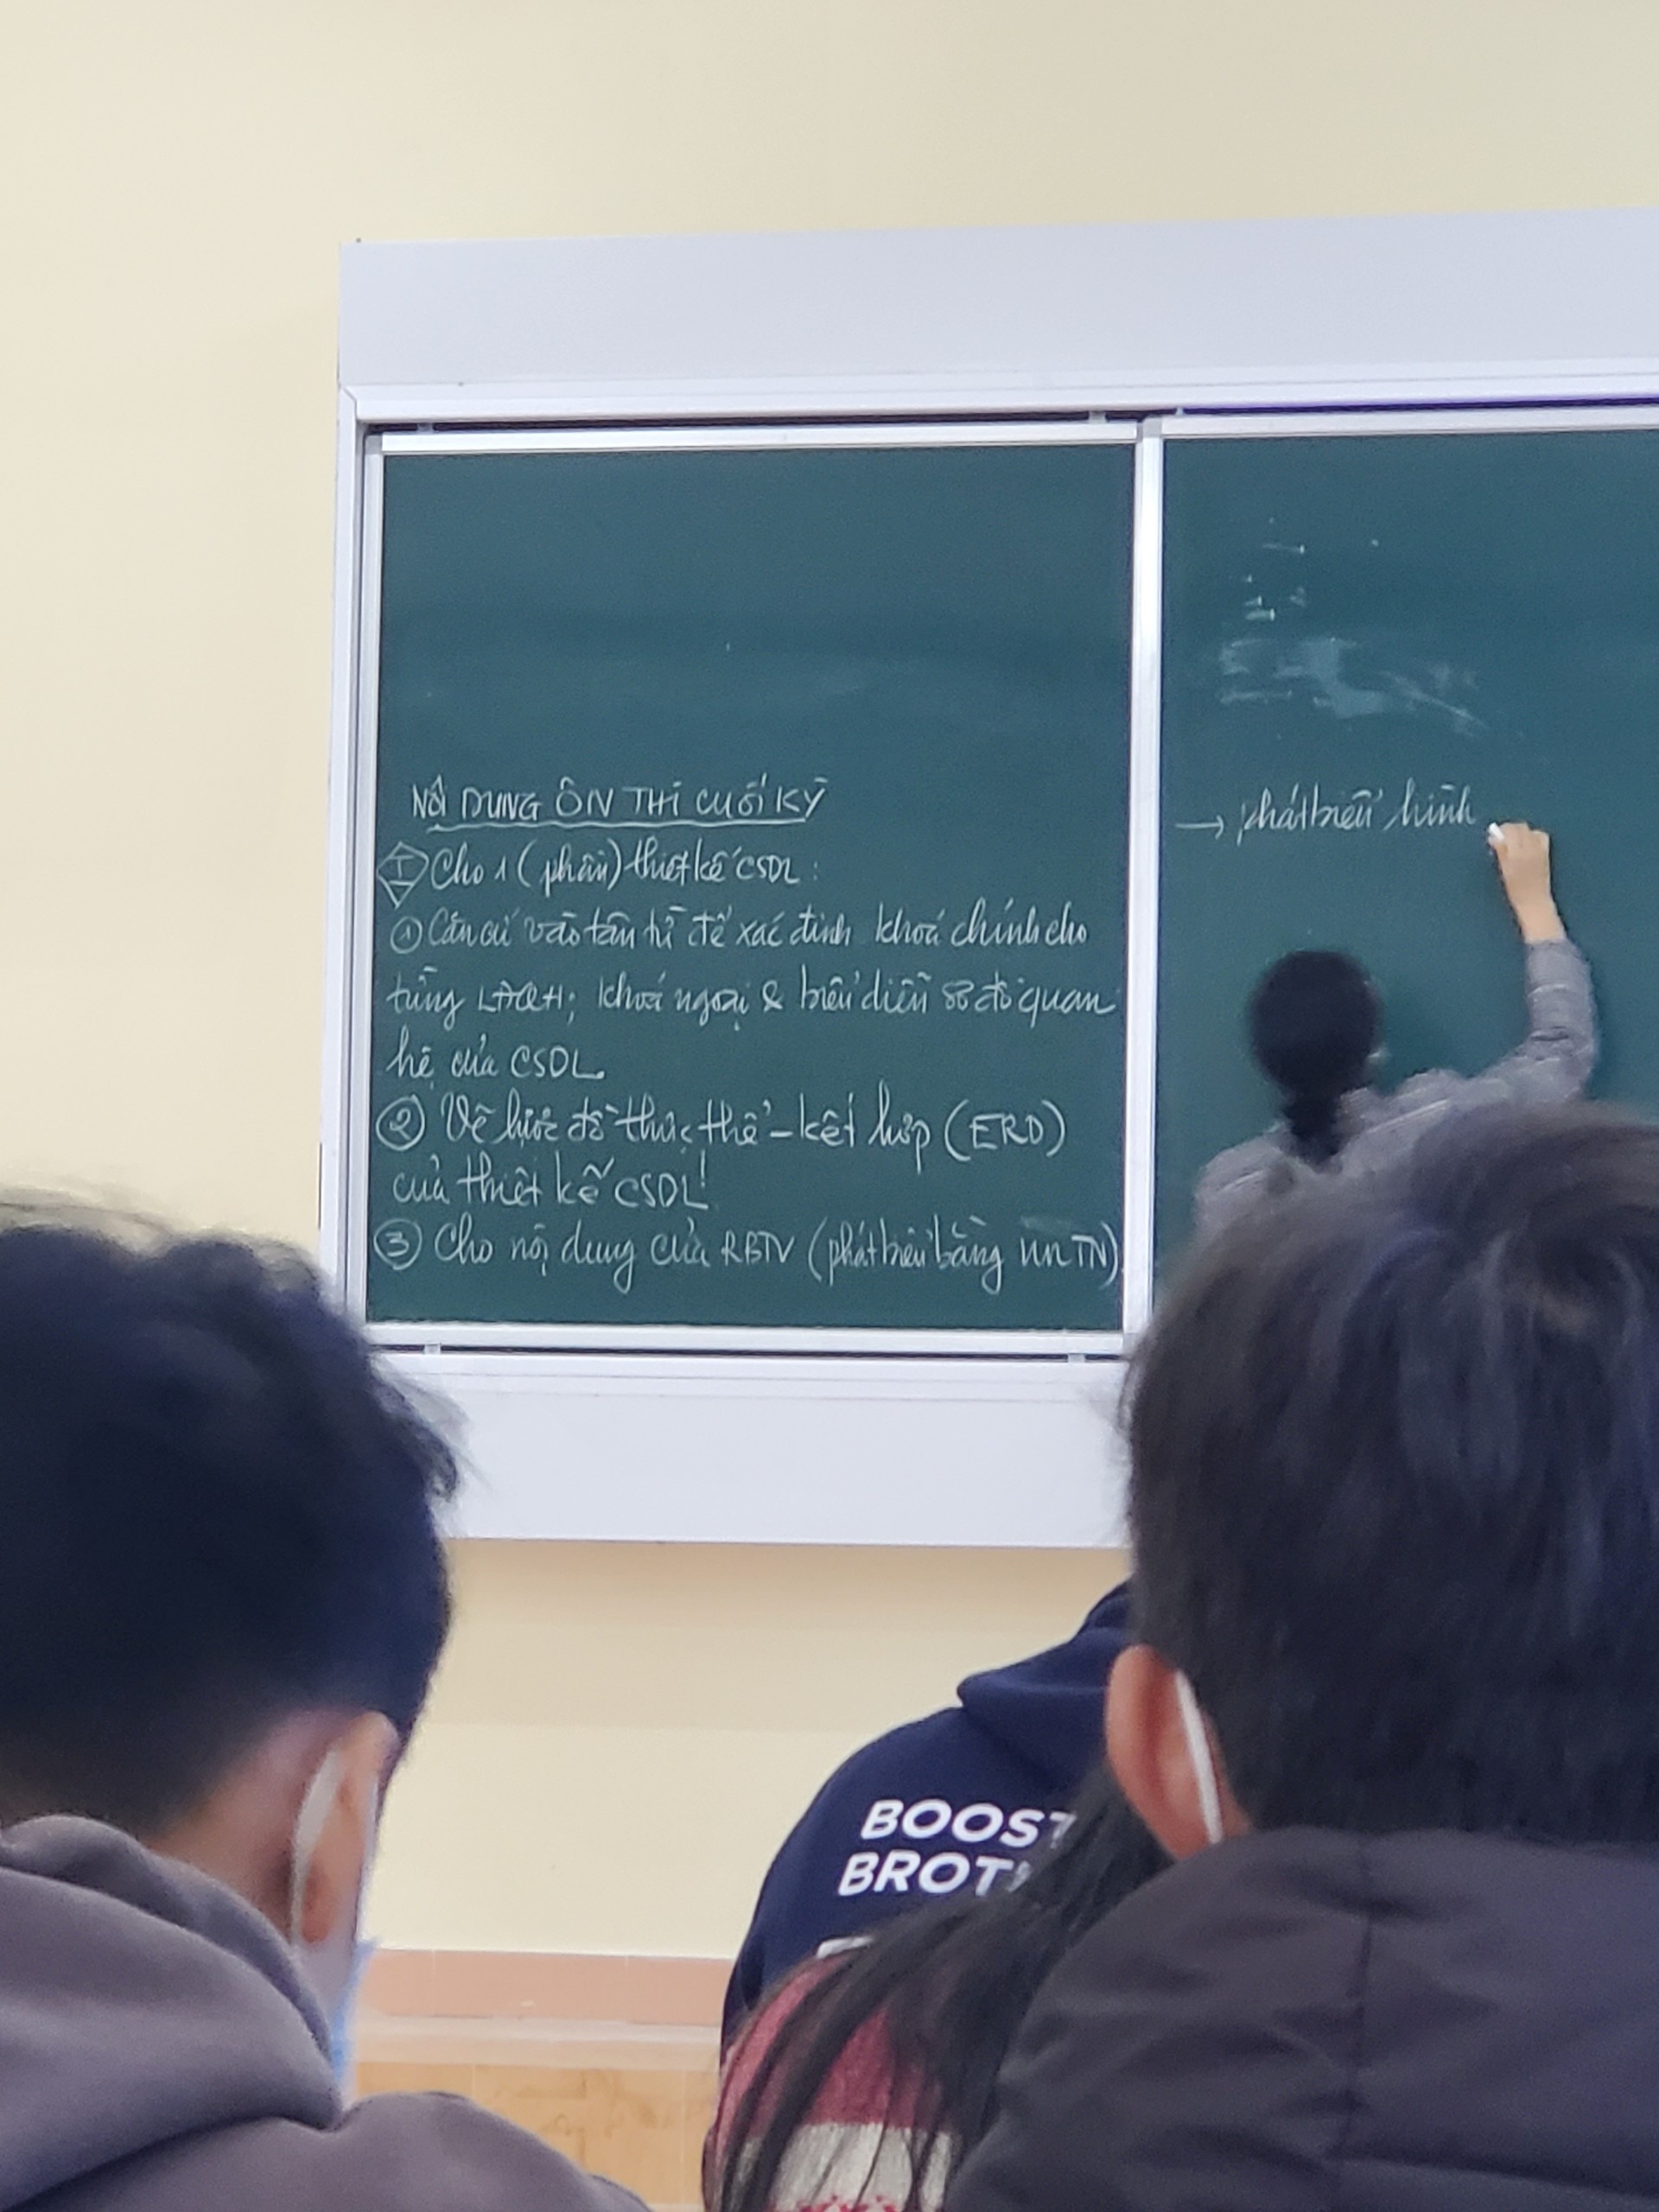 NỘI DUNG ÔN THI CUỐI KỲ
I Cho 1 (phần) thiết kế CSDL:
① Căn cứ vào tân từ để xác định khoá chính cho
từng LĐQH; khoá ngoại & biểu diễn sơ đồ quan
hệ của CSDL.
② Vẽ lược đồ thực thể - kết hợp (ERD)
của thiết kế CSDL!
③ Cho nội dung của RBTV (phát biểu bằng NNTN).
→ phát biểu hình
BOOST
BROT